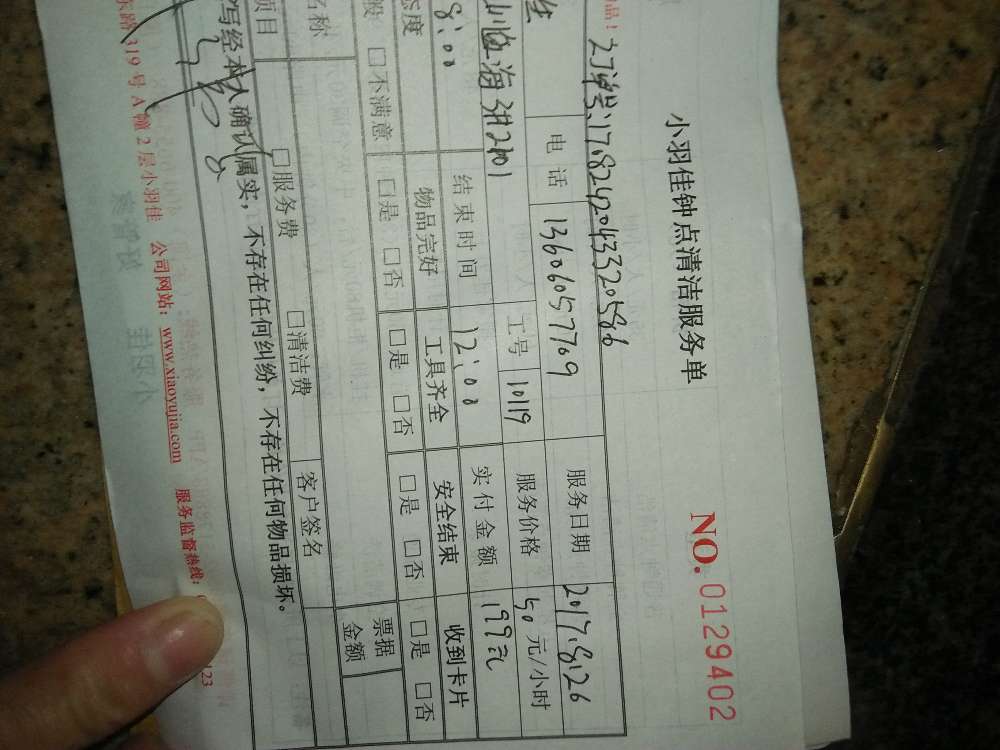 小羽佳钟点清洁服务单
NO. 0129402
品！
订单号:17082420433320586
生 电话 13606057709 服务日期 2017.8.26
2101 工号 1019 服务价格 50元/小时
8:00 结束时间 12:00 实付金额 199元
态度 物品完好 工具齐全 安全结束 收到卡片
般 □不满意 □是 □否 □是 □否 □是 □否 □是 □否
名称 客户签名 票据金额
项目 □服务费 □清洁费
写经本人确认属实，不存在任何纠纷，不存在任何物品损坏。
东路319号A幢2层小羽佳 公司网站：www.xiaoyujia.com 服务监督热线： 123